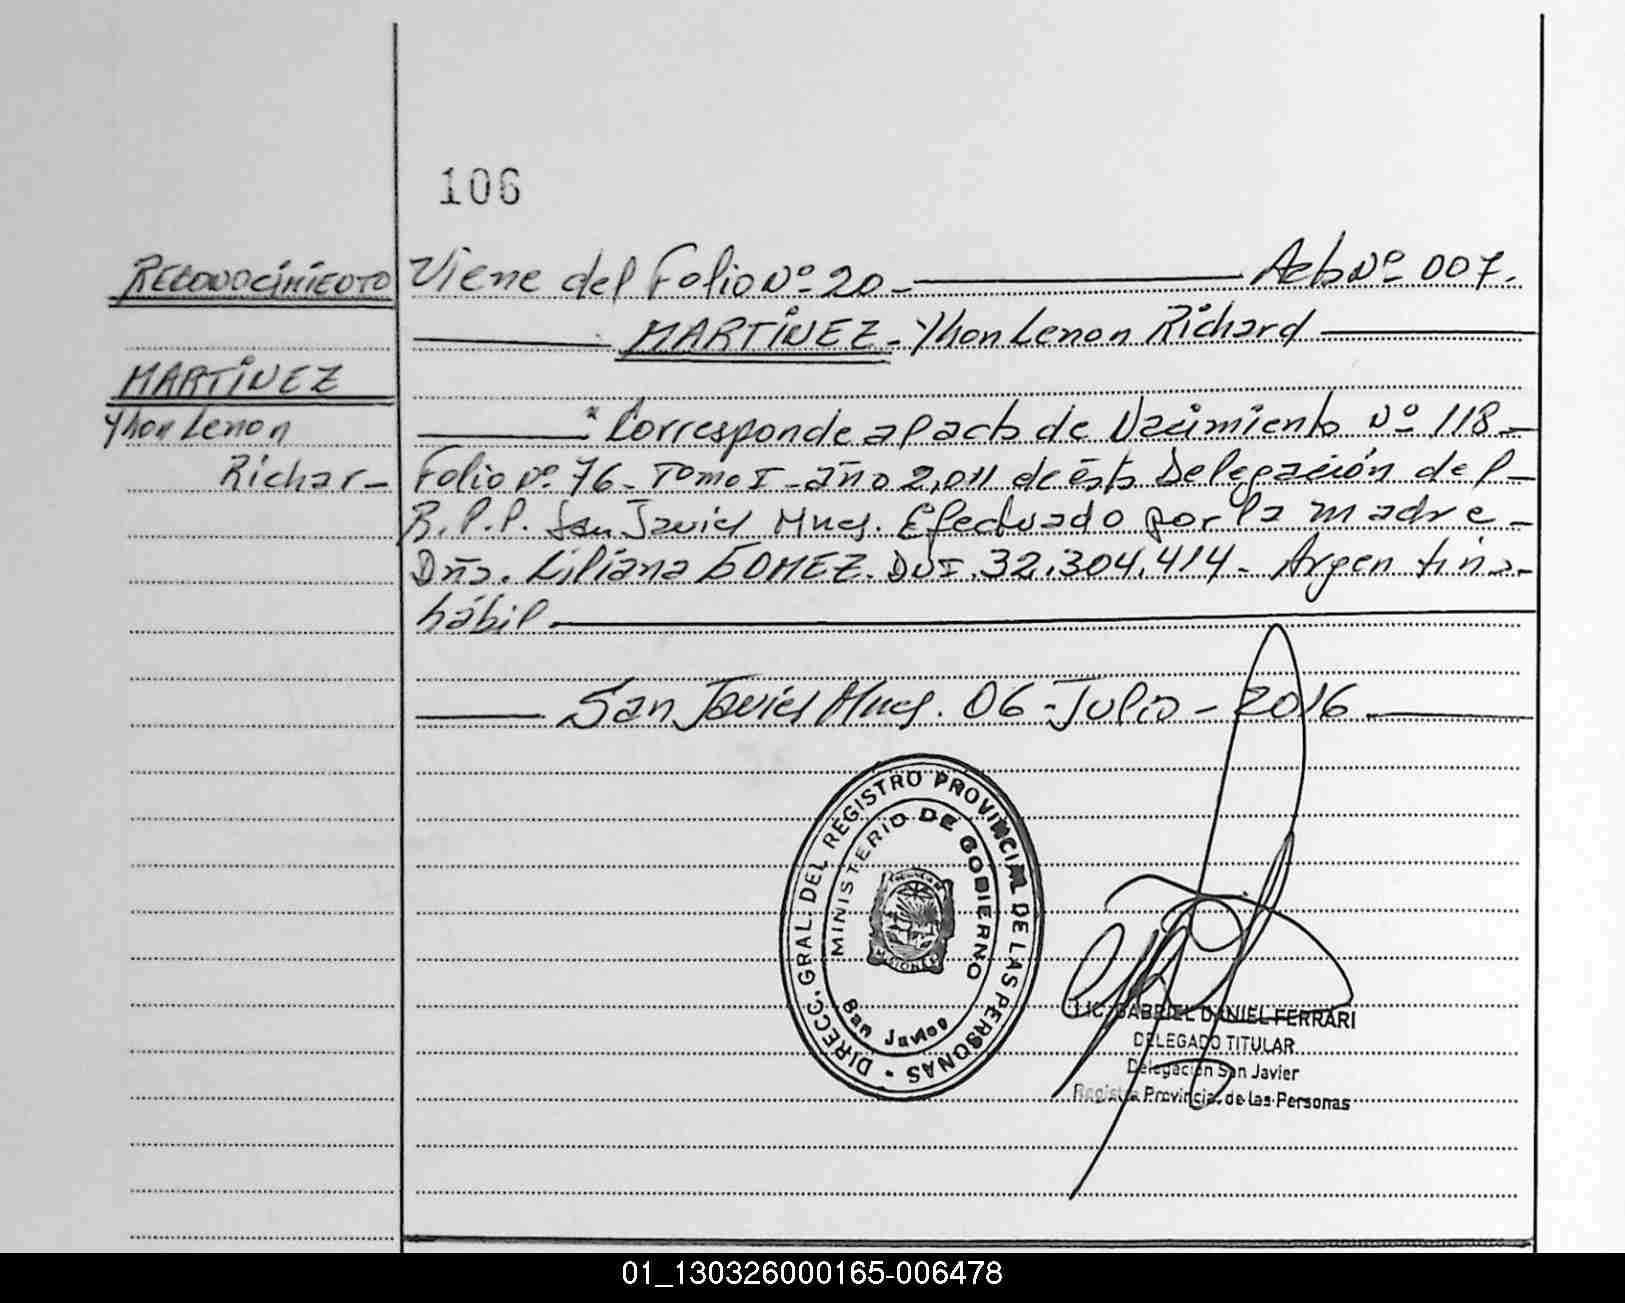 106
RECONOCIMIENTO
MARTINEZ
Yhon Lenon
Richar-
Viene del Folio Nº 20. Acta Nº 007.
MARTINEZ - Yhon Lenon Richard
" Corresponde al acta de Nacimiento Nº 118-
Folio Nº 76- Tomo I - año 2,011 de ésta Delegación del-
R.P.P. San Javier Mnes. Efectuado por la madre-
Dña. Liliana GOMEZ. DNI. 32.304.414- Argentina-
hábil.
San Javier Mnes. 06 - Julio - 2016
DIRECC. GRAL. DEL REGISTRO PROVINCIAL DE LAS PERSONAS -
MINISTERIO DE GOBIERNO
MISIONES
San Javier
LIC. GABRIEL DANIEL FERRARI
DELEGADO TITULAR
Delegación San Javier
Registro Provincial de las Personas
01_130326000165-006478